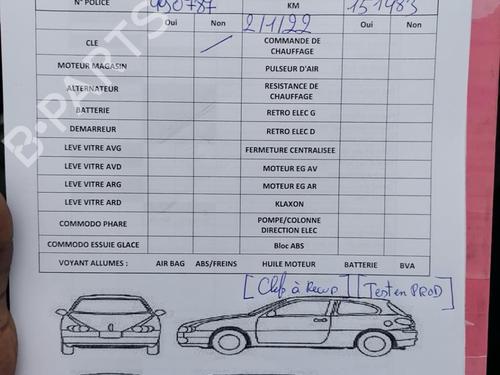 N° POLICE 490787 KM 151983
Oui Non 2/1/22 Oui Non
CLE COMMANDE DE CHAUFFAGE
MOTEUR MAGASIN PULSEUR D'AIR
ALTERNATEUR RESISTANCE DE CHAUFFAGE
BATTERIE RETRO ELEC G
DEMARREUR RETRO ELEC D
LEVE VITRE AVG FERMETURE CENTRALISEE
LEVE VITRE AVD MOTEUR EG AV
LEVE VITRE ARG MOTEUR EG AR
LEVE VITRE ARD KLAXON
COMMODO PHARE POMPE/COLONNE DIRECTION ELEC
COMMODO ESSUIE GLACE Bloc ABS
VOYANT ALLUMES : AIR BAG ABS/FREINS HUILE MOTEUR BATTERIE BVA
[Clef à Recup] [Test en PROD]
B-PARTS